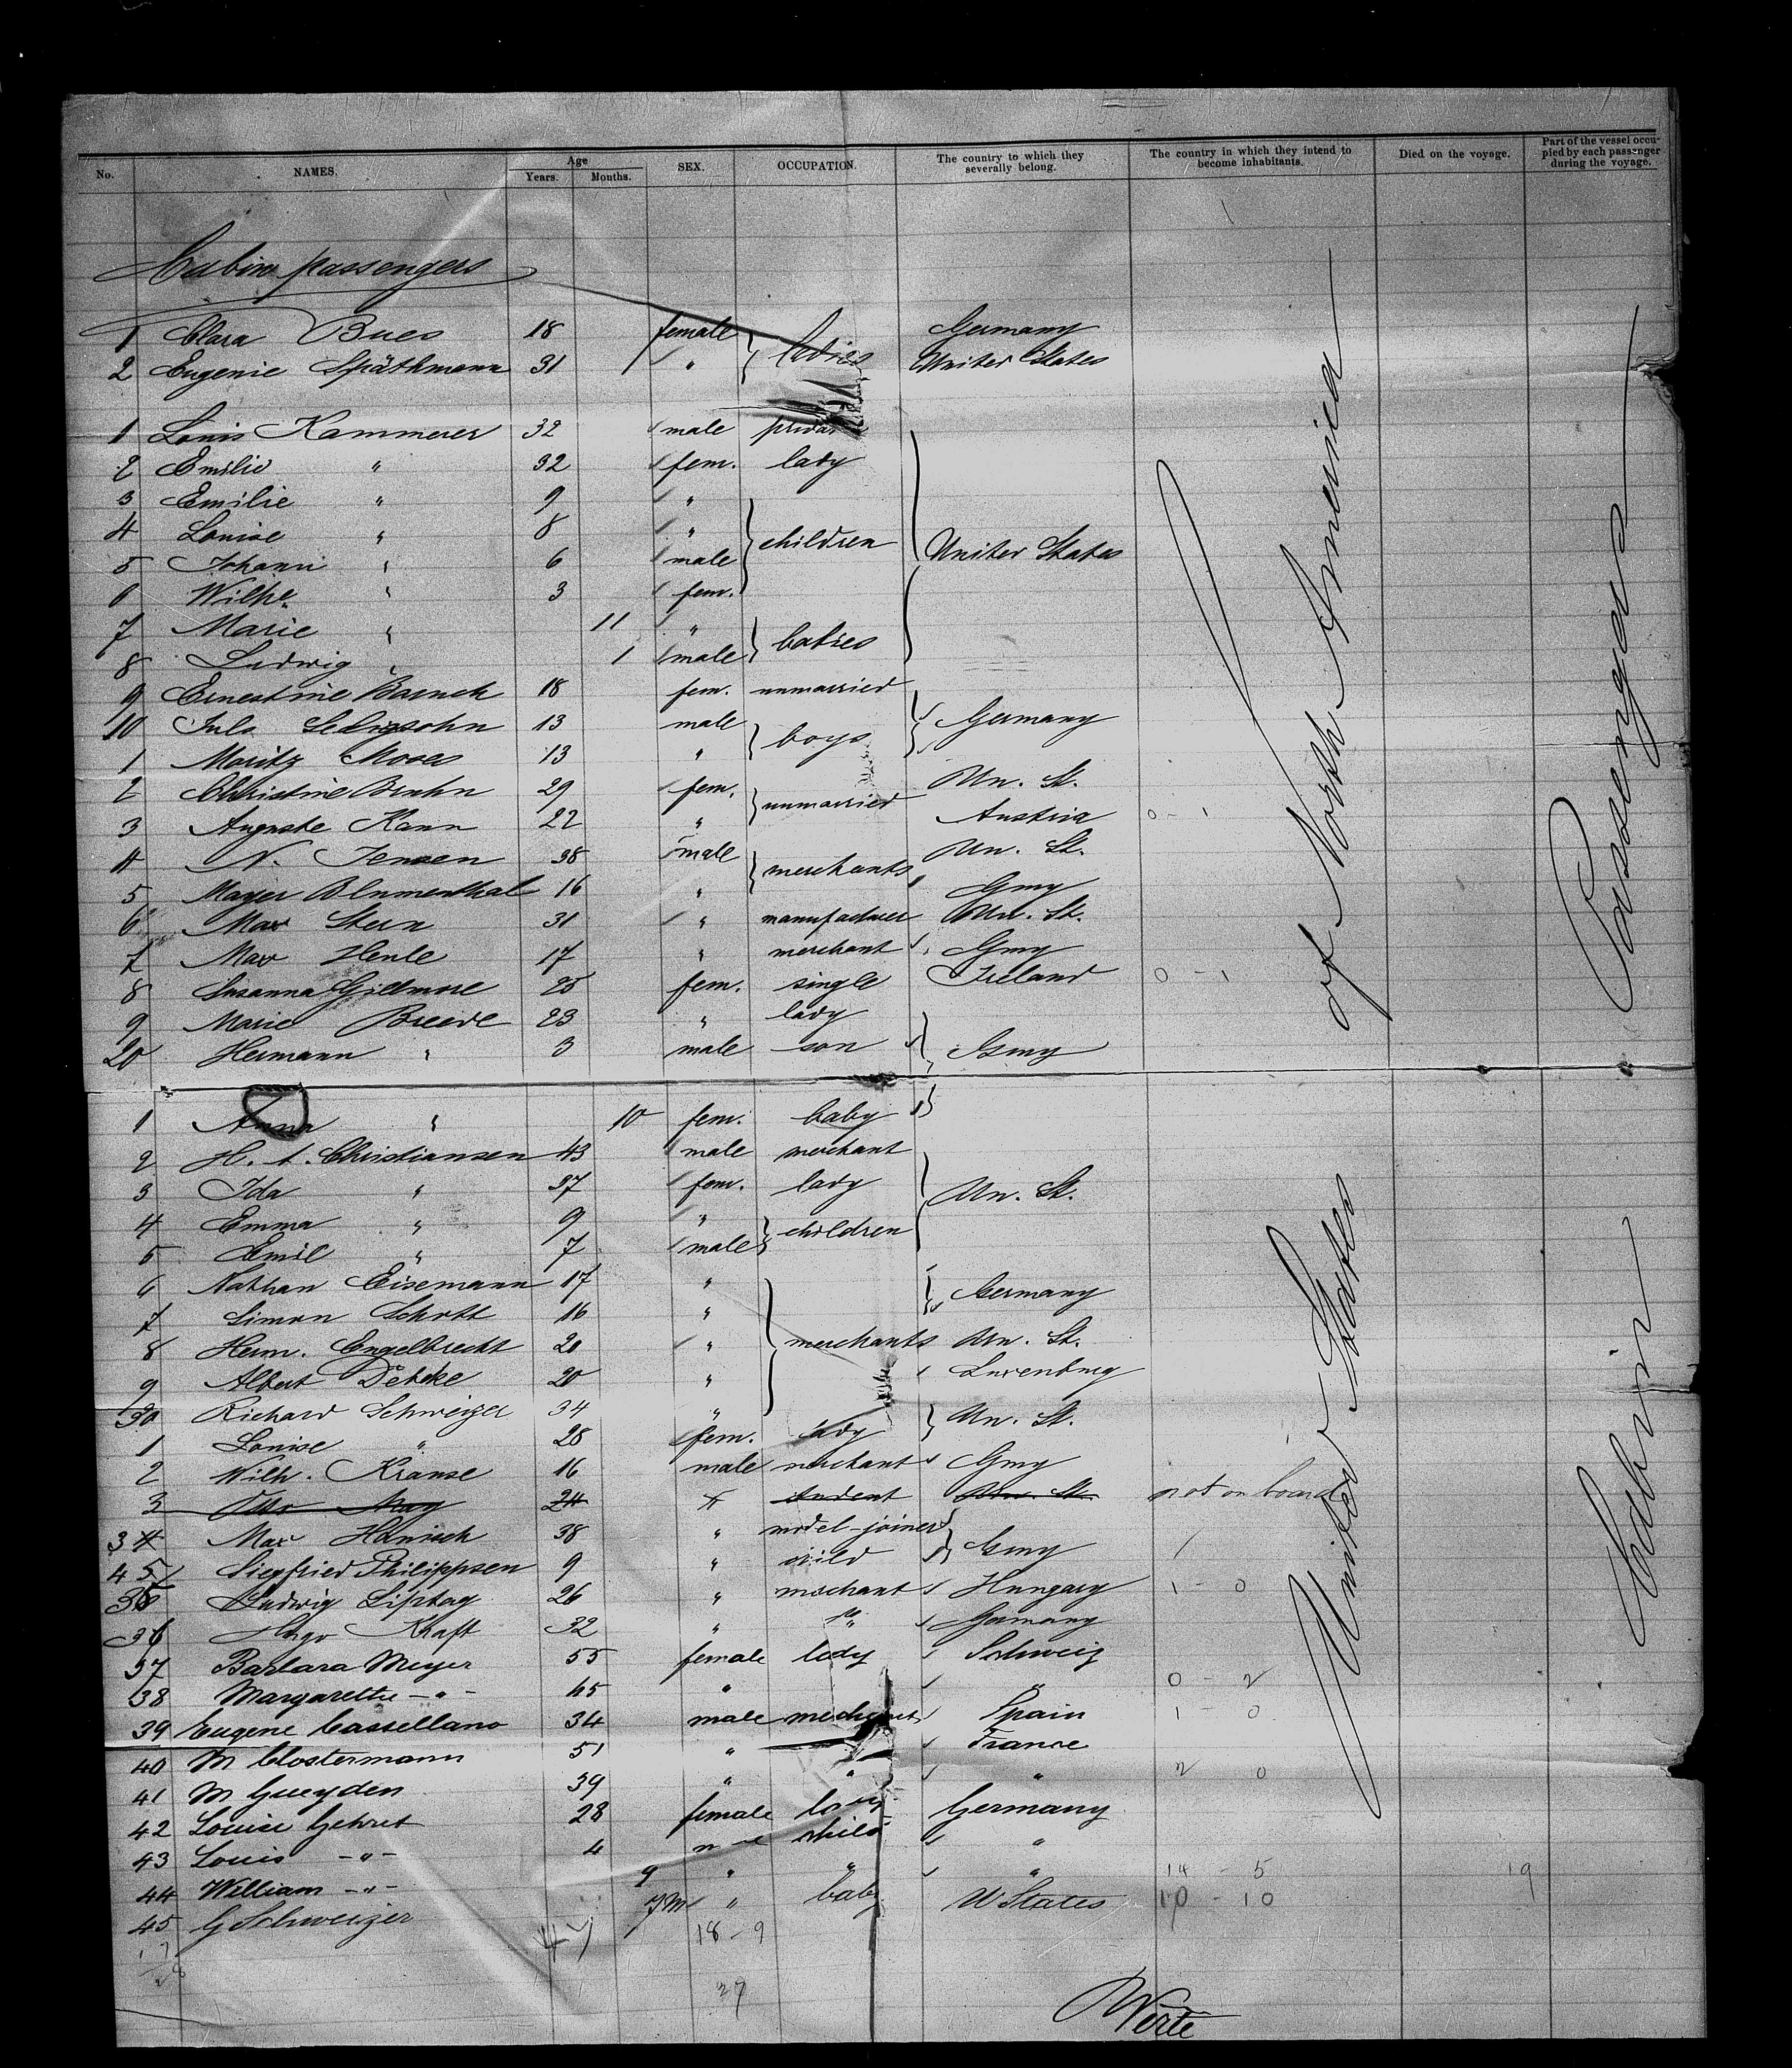 No. NAMES. Age Years. Months. SEX. OCCUPATION. The country to which they severally belong. The country in which they intend to become inhabitants. Died on the voyage. Part of the vessel occupied by each passenger during the voyage.
Cabin passengers
1 Clara Bues 18 female ladies Germany
2 Eugenie Späthmann 31 " United States
1 Louis Kammerer 32 male
2 Emilie " 32 fem. lady
3 Emilie " 9 "
4 Louise " 8 " children
5 Johann " 6 male United States
6 Wilhe. " 3 fem.
7 Marie " 11 " babies
8 Ludwig " 1 male
9 Ernestine Baruch 18 fem. unmarried
10 Juls Seligsohn 13 male boys Germany
1 Moritz Moses 13 "
2 Christine Bruhn 29 fem. unmarried Un. St.
3 Auguste Kann 22 " Austria 0 - 1
4 N. Jensen 38 male merchants Un. St.
5 Mayer Blumenthal 16 " Gmy
6 Max Stern 31 " manufacturer Un. St.
7 Max Henle 17 " merchant Gmy
8 Susanna Gillmore 25 fem. single Ireland 0 - 1
9 Marie Breede 23 " lady
20 Hermann " 3 male son Gmy
1 Anna " 10 fem. baby
2 H. A. Christiansen 43 male merchant
3 Ida " 37 fem. lady Un. St.
4 Emma " 9 " children
5 Emil " 7 male
6 Nathan Eisemann 17 " Germany
7 Simon Schott 16 "
8 Herm. Engelbrecht 20 " merchants Un. St.
9 Albert Detcke 20 " Luxenburg
30 Richard Schweizer 34 " Un. St.
1 Louise " 28 fem. lady
2 Wilh. Krause 16 male merchant Gmy
3 Otto May 24 student Un. St. not on board
34 Max Hanisch 38 " model-joiner Gmy
45 Siegfried Philippsen 9 " child
35 Ludwig Liptay 26 " merchant Hungary 1 - 0
36 Hugo Kraft 32 " " Germany
37 Barbara Meyer 55 female lady Schweiz
38 Margarethe -"- 45 " " 0 - 2
39 Eugene Cassellano 34 male merchant Spain 1 - 0
40 M Clostermann 51 " France
41 M Gueyden 39 " " " 2 0
42 Louise Gehret 28 female lady Germany
43 Louis -"- 4 child "
44 William -"- 9 " " " 14 - 5 19
45 G Schweizer 7M " baby U States 10 - 10
18 - 9
27
United States of North America
Cabin Passengers